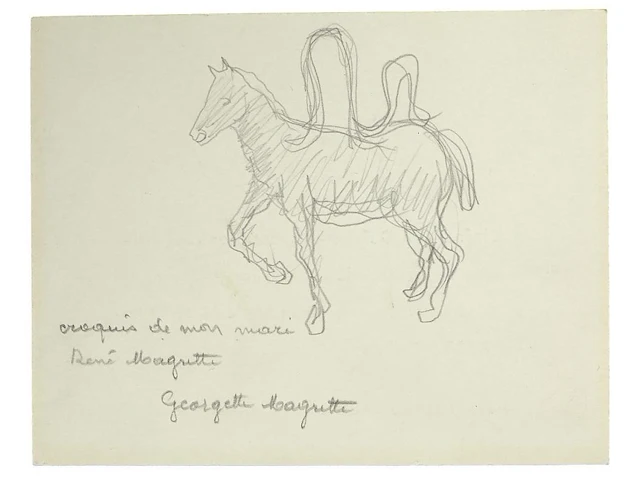 croquis de mon mari
René Magritte
Georgette Magritte